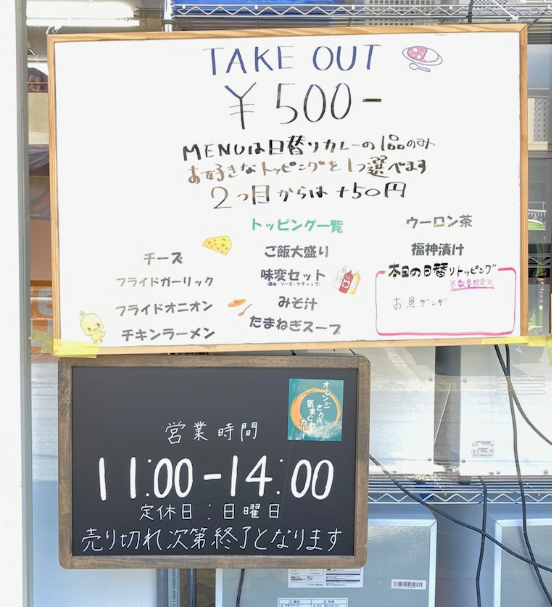 TAKE OUT
¥500-
MENUは日替りカレーの1品のみ
お好きなトッピングを1つ選べます
2つ目からは+50円
トッピング一覧
チーズ
フライドガーリック
フライドオニオン
チキンラーメン
ご飯大盛り
味変セット
みそ汁
たまねぎスープ
ウーロン茶
福神漬け
本日の日替りトッピング
お魚ザンギ
オレンジ
気まぐれ
カレー
営業時間
11:00-14:00
定休日:日曜日
売り切れ次第終了となります